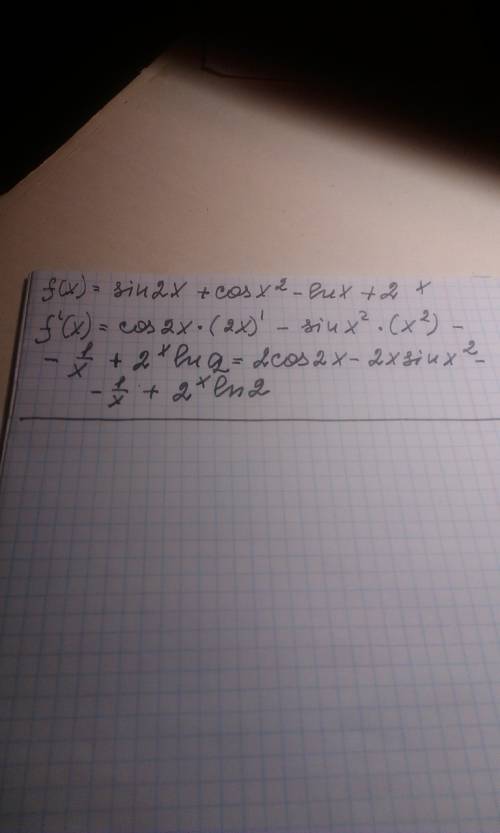 f(x) = sin2x + cosx² - lnx + 2^x
f'(x) = cos2x·(2x)' - sinx²·(x²) -
- 1/x + 2^x ln2 = 2cos2x - 2xsinx² -
- 1/x + 2^x ln2